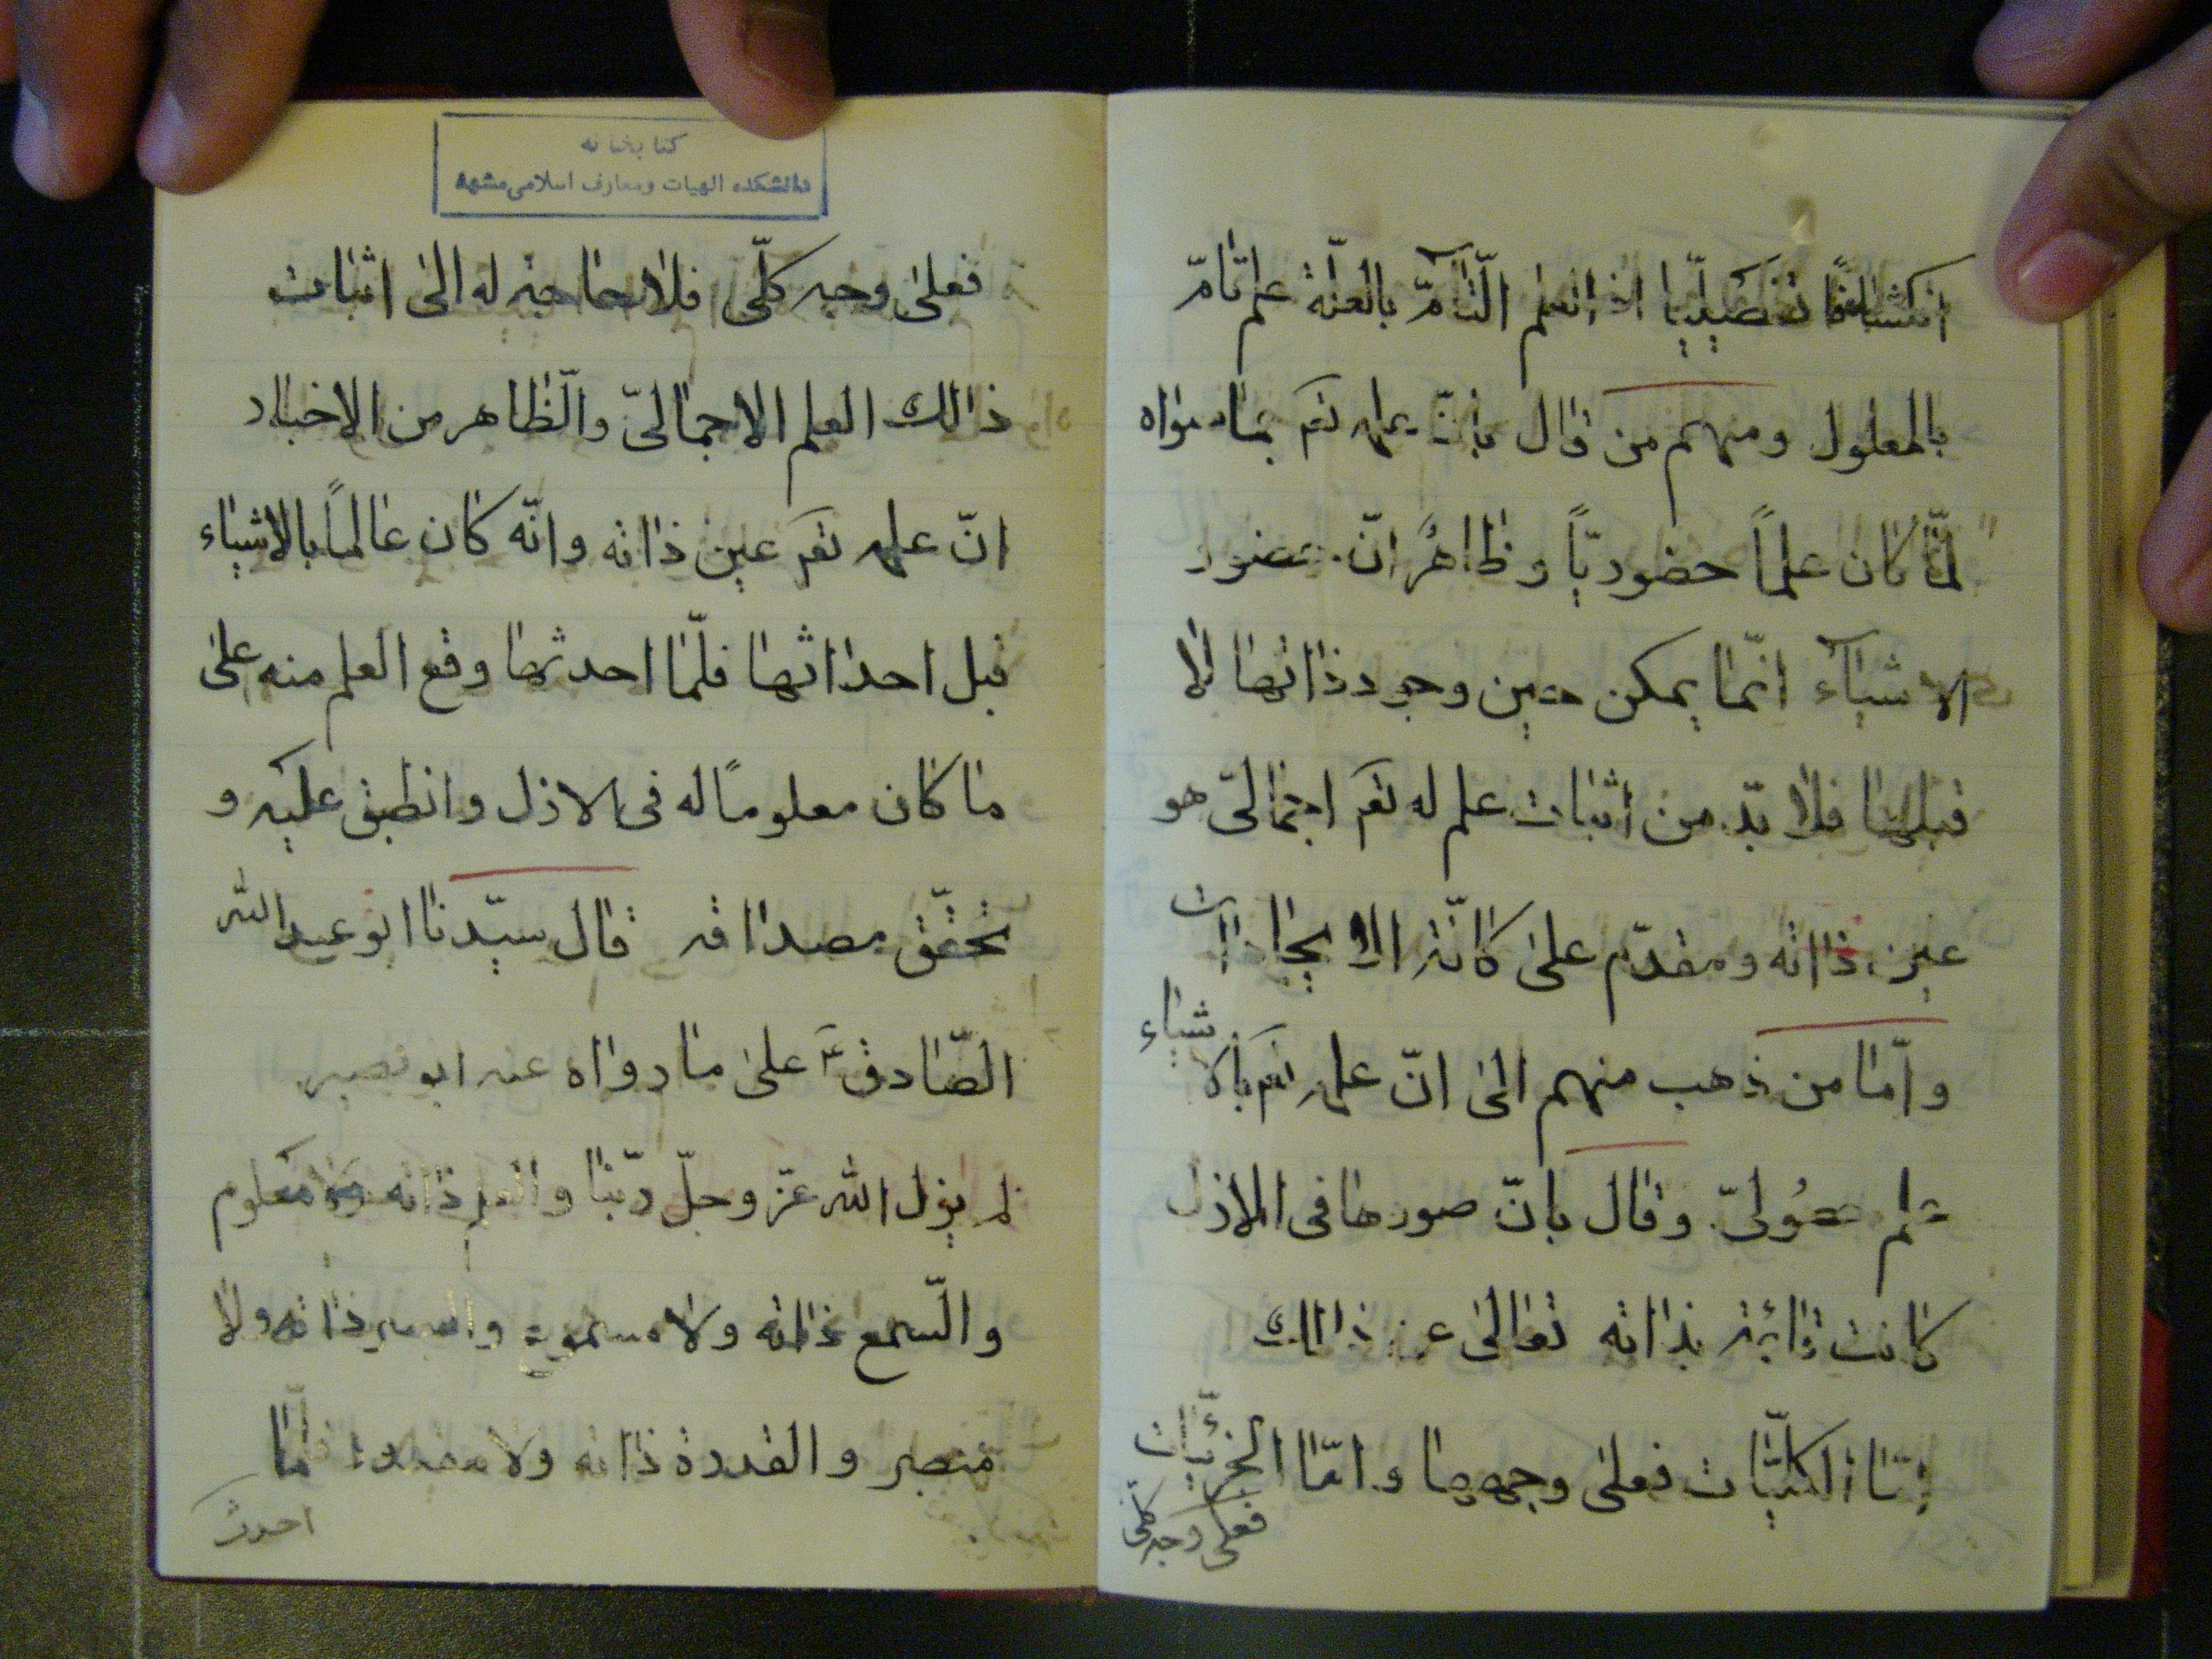 انكشافًا تفصيليّا اذ العلم التّامّ بالعلّة علم تامّ
بالمعلول ومنهم من قال بانّ علمه تعم بما سواه
لمّا كان علماً حضوريّاً وظاهرً انّ حضور
الاشيآء انّما يمكن حين وجود ذاتها لا
قبلها فلا بدّ من اثبات علم له تعم اجمالىّ هو
عين ذاته ومقدّم على كانّة الايجادات
وامّا من ذهب منهم الى انّ علمه تعم بالاشياء
علم حصُولىّ وقال بانّ صورها فى الازل
كانت قائمة بذاته تعالى عن ذالك
امّا الكليّات فعلى وجهها وامّا الجزئيّات
فعلى وجه كلى
كتابخانه
دانشكده الهيات ومعارف اسلامى مشهد
فعلى وجه كلّى فلا حاجة له الى اثبات
ذالك العلم الاجمالىّ والّظاهر من الاخبار
انّ علمه تعم عين ذاته وانّه كان عالماً بالاشياء
قبل احداثها فلّما احدثها وقع العلم منه على
ما كان معلومًا له فى الازل وانطبق عليه و
تحقّق مصداقه قال سيّدنا ابو عبد الله
الصّادق ع على ما رواه عنه ابو بصير
لم يزل الله عزّ وجلّ ربّنا والعلم ذاته ولا معلوم
والسّمع ذاته ولا مسموع والبصر ذاته ولا
مبصر والقدرة ذاته ولا مقدور فلمّا
احدث